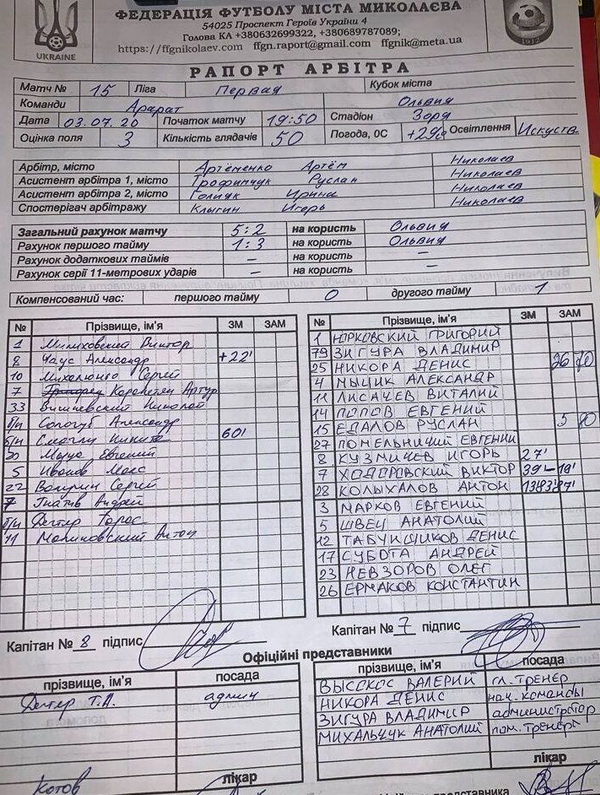 UKRAINE
ФЕДЕРАЦІЯ ФУТБОЛУ МІСТА МИКОЛАЄВА
54025 Проспект Героїв України 4
Голова КЛ +380632699322, +380689787089;
https://ffgnikolaev.com ffgn.raport@gmail.com ffgnik@meta.ua
РАПОРТ АРБІТРА
Матч № 15 Ліга Первая Кубок міста
Команди Арарат Ольвия
Дата 03.07.20 Початок матчу 19:50 Стадіон Заря
Оцінка поля 3 Кількість глядачів 50 Погода, 0С +29 Освітлення Искуств
Арбітр, місто Артеменко Артём Николаев
Асистент арбітра 1, місто Трофимчук Руслан Николаев
Асистент арбітра 2, місто Голиук Ирина Николаев
Спостерігач арбітражу Клыгин Игорь Николаев
Загальний рахунок матчу 5:2 на користь Ольвия
Рахунок першого тайму 1:3 на користь Ольвия
Рахунок додаткових таймів – на користь –
Рахунок серії 11-метрових ударів – на користь –
Компенсований час: першого тайму 0 другого тайму 1
№ Прізвище, ім'я ЗМ ЗАМ
1 Виктор
8 Чаус Александр +22'
10 Михаленко Сергей
7 Карапетян Артур
33 Вишневский Николай
б/н Сологуб Александр
б/н Никита 60'
20 Евгений
5 Иванов Макс
22 Сергей
7 Гнатів Андрей
б/н Дегтяр Тарас
11 Малиновский Антон
№ Прізвище, ім'я ЗМ ЗАМ
1 ЮРКОВСКИЙ ГРИГОРИЙ
79 ЗИГУРА ВЛАДИМИР
25 НИКОРА ДЕНИС 26 70
4 МЫЦИК АЛЕКСАНДР
11 ЛИСАЧЕВ ВИТАЛИЙ
14 ПОПОВ ЕВГЕНИЙ
15 ЕДАЛОВ РУСЛАН 5 80
27 ПОМЕЛЬНИЧИЙ ЕВГЕНИЙ
8 КУЗМИЧЕВ ИГОРЬ 27'
7 ХОДОРОВСКИЙ ВИКТОР 39'
28 КОЛЫХАЛОВ АНТОН 13' 83' 87'
3 МАРКОВ ЕВГЕНИЙ
5 ШВЕЦ АНАТОЛИЙ
12 ТАБУНЩИКОВ ДЕНИС
17 СУБОТА АНДРЕЙ
23 НЕВЗОРОВ ОЛЕГ
26 ЕРМАКОВ КОНСТАНТИН
Капітан № 8 підпис
Капітан № 7 підпис
Офіційні представники
прізвище, ім'я посада
Дегтяр Т.А. админ
лікар
Котов
прізвище, ім'я посада
ВЫСОКОС ВАЛЕРИЙ гл. тренер
НИКОРА ДЕНИС нач. команды
ЗИГУРА ВЛАДИМИР администратор
МИХАЛЬЧУК АНАТОЛИЙ пом. тренера
лікар
представника